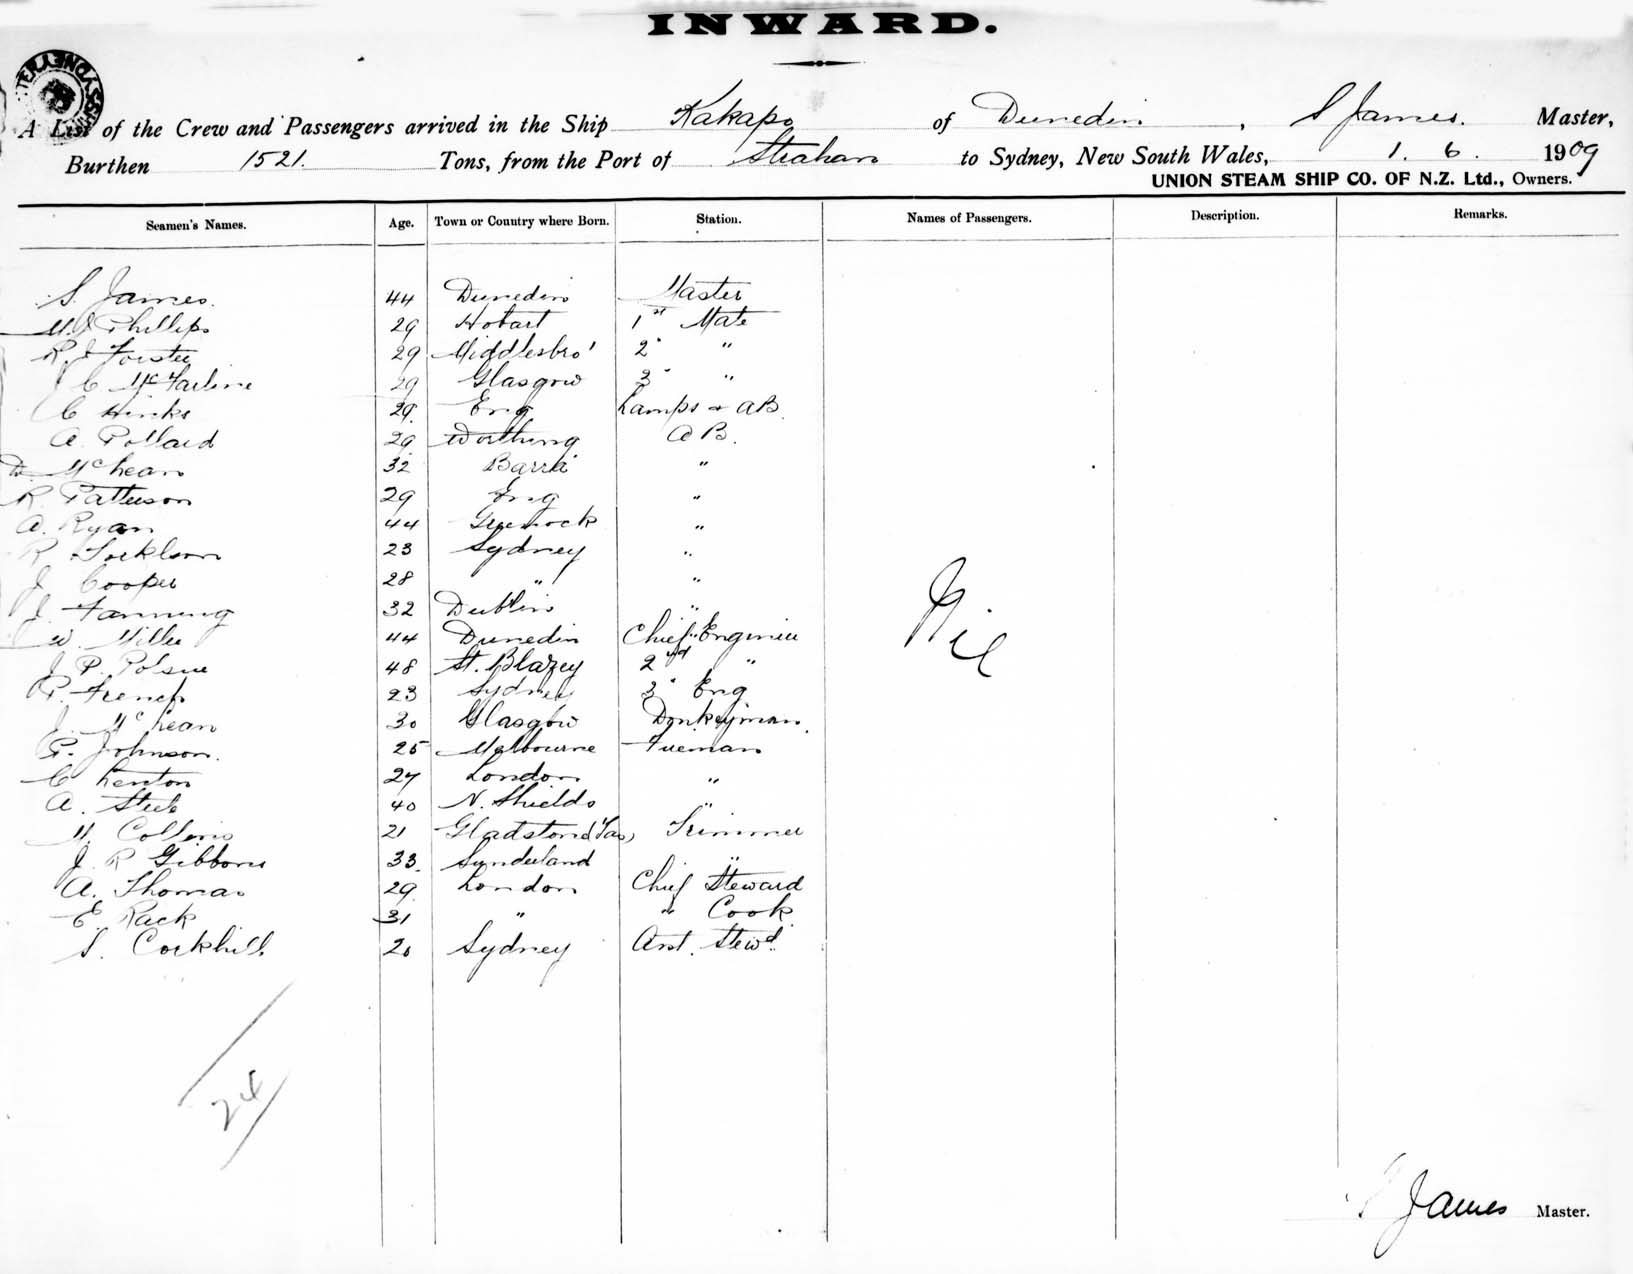 INWARD.
A List of the Crew and Passengers arrived in the Ship Kakapo of Dunedin, S James. Master,
Burthen 1521. Tons, from the Port of Strahan to Sydney, New South Wales, 1. 6. 1909
UNION STEAM SHIP CO. OF N.Z. Ltd., Owners.
Seamen's Names. Age. Town or Country where Born. Station. Names of Passengers. Description. Remarks.
S. James. 44 Dunedin Master
Phillips 29 Hobart 1st Mate
R. J Forster 29 Middlesbro' 2" "
J C McFarline 29 Glasgow 3" "
C Hinks 29. Eng. Lamps & AB.
A. Pollard 29 Worthing AB.
D. McLean 32 Barra "
R. Patterson 29 Eng "
A. Ryan 44 Greenock "
R 23 Sydney "
J Cooper 28 " "
J. Fanning 32 Dublin "
W. Miller 44 Dunedin Chief Engineer
J. P. Polsue 48 St. Blazey 2nd "
P. French 23 Sydney 3" Eng
J. McLean 30 Glasgow Donkeyman.
P. Johnson. 25 Melbourne Fireman
C Lenton 27 London "
A. Steel 40 N. Shields "
Collins 21 Gladstone (Tas) Trimmer
J. R Gibbons 33. Sunderland "
A. Thomas 29. London Chief Steward
E. Rack 31 " " Cook
S. Corkhill 20 Sydney Asst. Stewd.
Nil
24
S James Master.